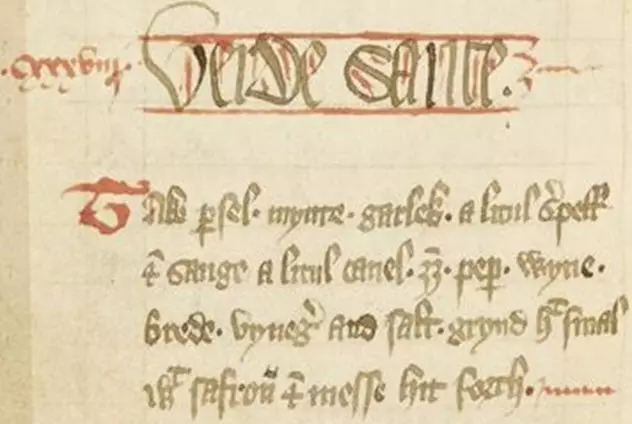 .Cxxxviij. Verde Sause.
Tak ꝑsel. mynte. garlek. a litul s͛pell
⁊ sauge a litul canel. gg̅. peꝑ. wyne.
brede. vyneg͛ and salt. grynd hᵗ smal
wᵗ safrou̅ ⁊ messe hit forth.